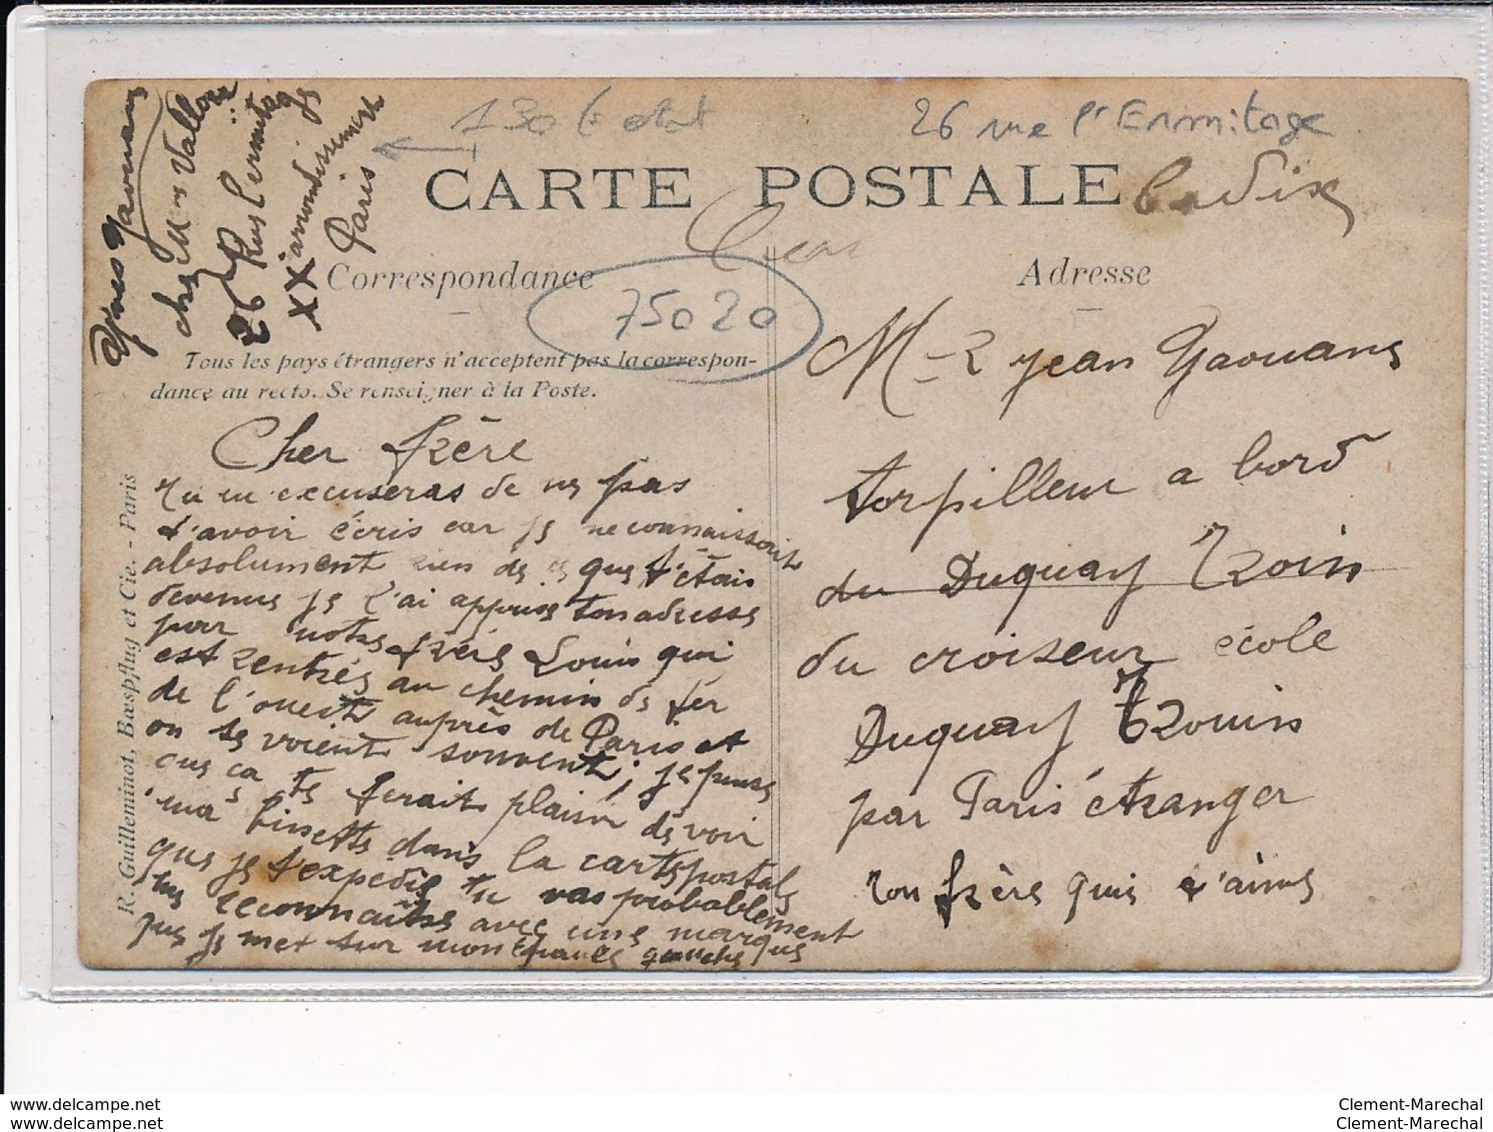 130 € état
26 rue l'Ermitage
CARTE POSTALE
Cadix
75020
Correspondance
Adresse
Tous les pays étrangers n'acceptent pas la correspon-
dance au recto. Se renseigner à la Poste.
R. Guilleminot, Bœspflug et Cie. - Paris
Gaouans
chez Mr Vallon
26 Rue l'ermitage
XX arrondissement
Paris
Cher frère
Tu m excuseras de ne pas
t'avoir écris car je ne connaissait
absolument rien de ce que t'étais
devenus je l'ai appris ton adresse
par notre frère Louis qui
est rentrés au chemin de fer
de l'ouest auprès de Paris et
on se voient souvent, je pense
que ça te ferait plaisir de voir
ma binette dans la carte postale
que je t'expédie tu vas probablement
me reconnaitre avec une marque
que je met sur mon épaule gauche
Mr Jean Gaouans
torpilleur a bord
du Duquay Troin
du croiseur école
Duquay Trouin
par Paris étranger
Ton frère qui t'aime
www.delcampe.net
www.delcampe.net
Clement-Marechal
Clement-Marechal